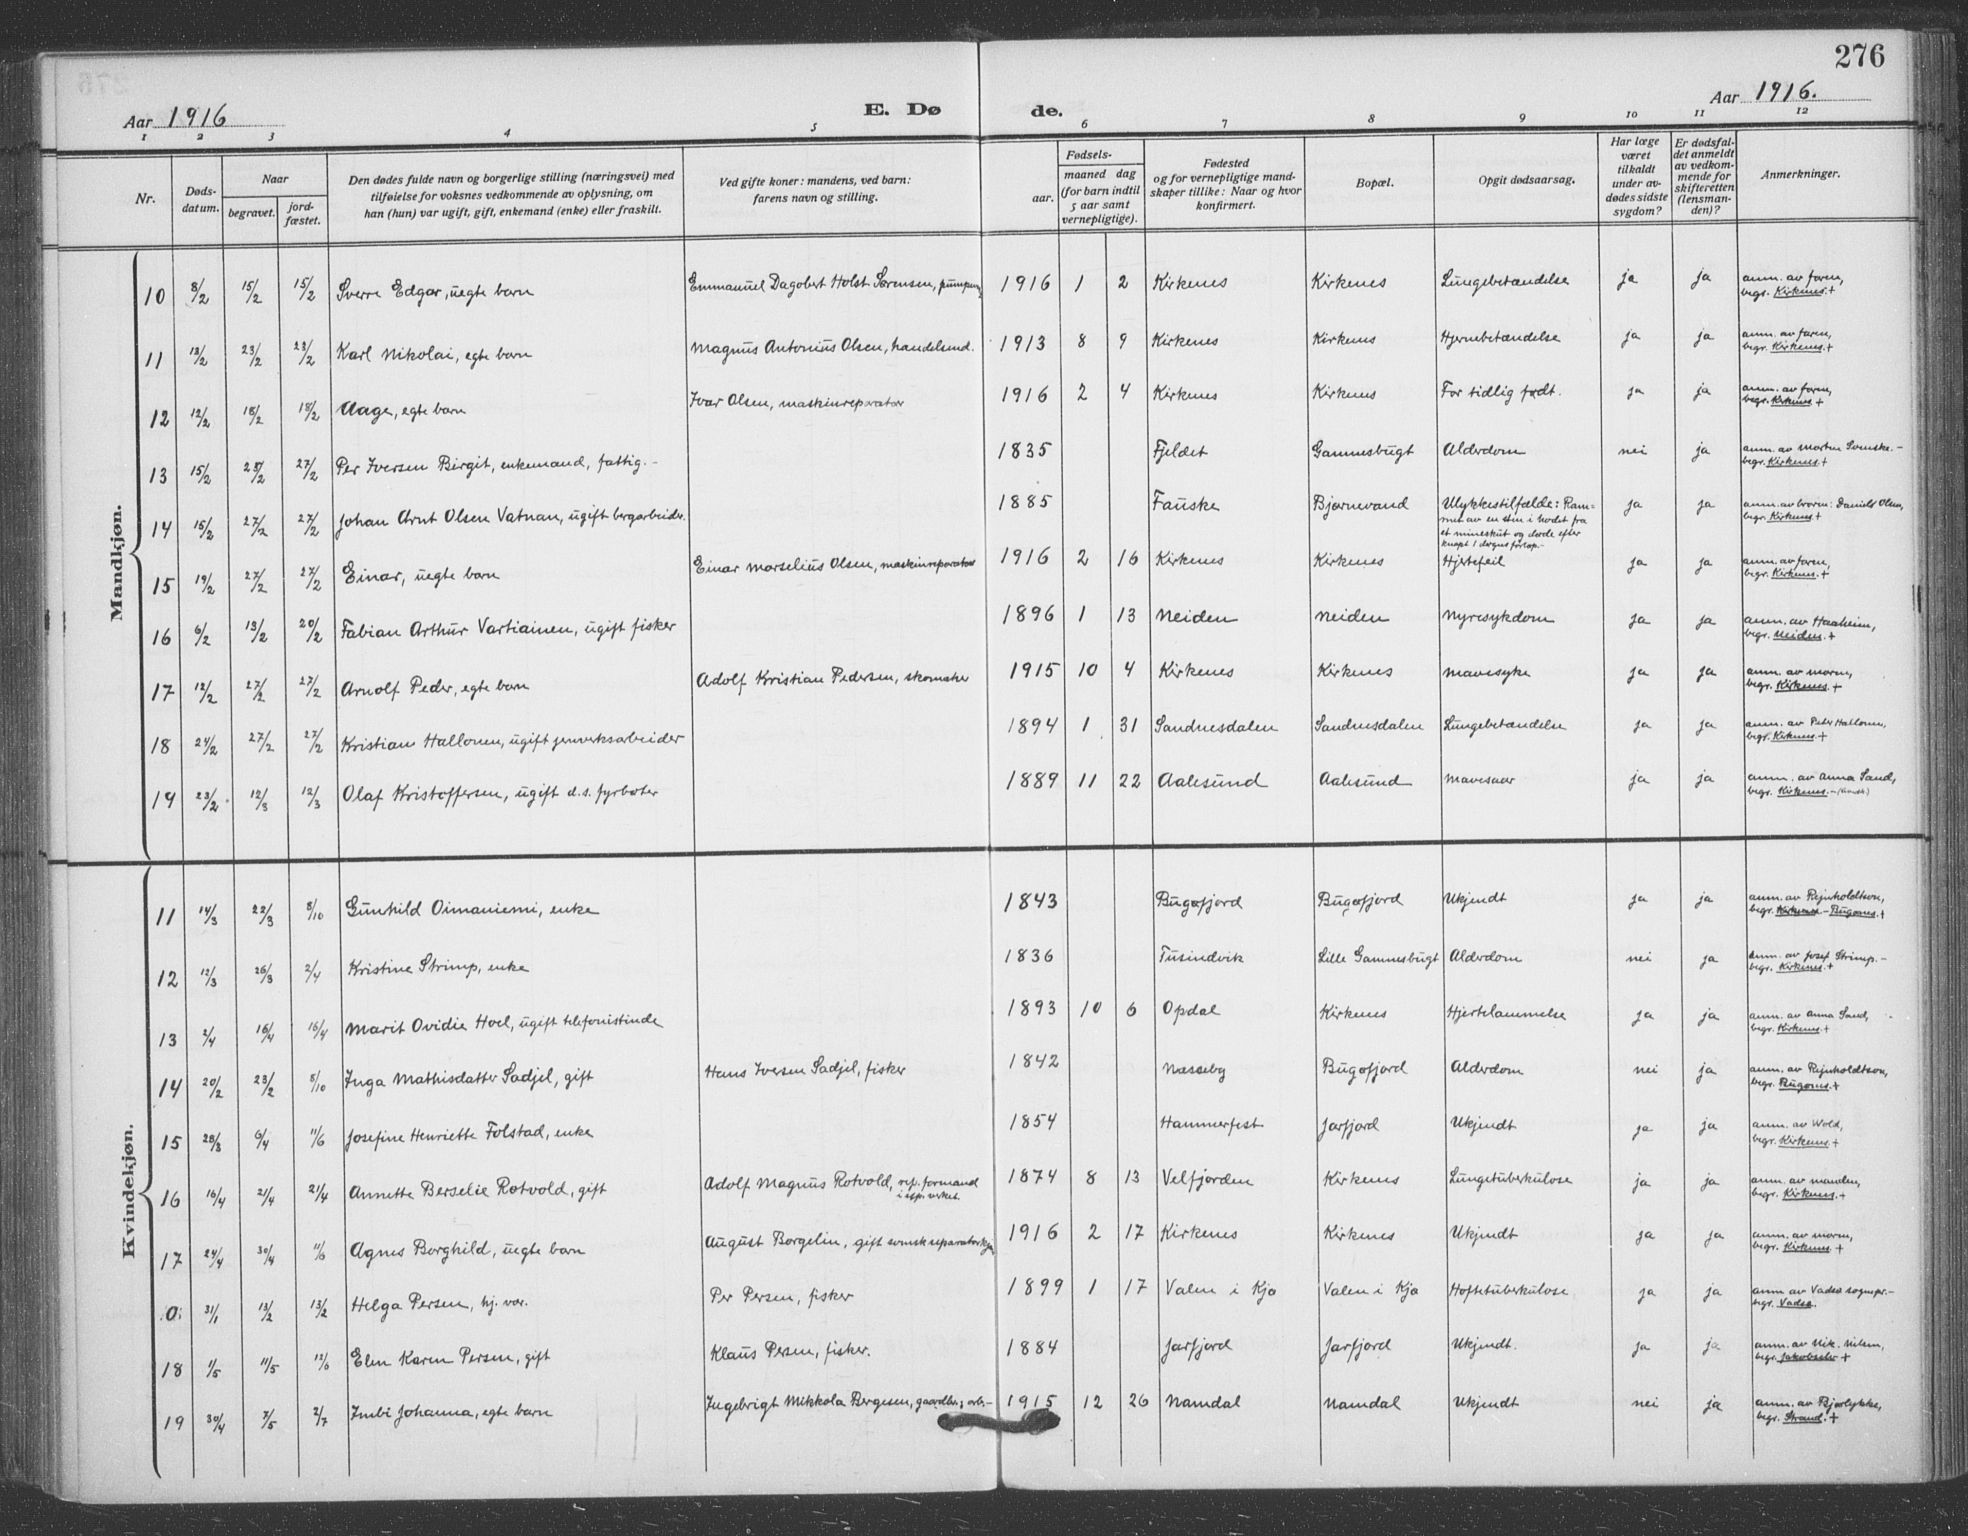 276
Aar 1916
E. Dø de.
Aar 1916.
1 2 3 4 5 6 7 8 9 10 11 12
Nr.
Døds-
datum.
Naar
begravet.
jord-
fæstet.
Den dødes fulde navn og borgerlige stilling (næringsvei) med
tilføielse for voksnes vedkommende av oplysning, om
han (hun) var ugift, gift, enkemand (enke) eller fraskilt.
Ved gifte koner: mandens, ved barn:
farens navn og stilling.
Fødsels-
aar.
maaned dag
(for barn indtil
5 aar samt
vernepligtige).
Fødested
og for vernepligtige mand-
skaper tillike: Naar og hvor
konfirmert.
Bopæl.
Opgit dødsaarsag.
Har læge
været
tilkaldt
under av-
dødes sidste
sygdom?
Er dødsfal-
det anmeldt
av vedkom-
mende for
skifteretten
(lensman-
den)?
Anmerkninger.
Mandkjøn.
10 8/2 15/2 15/2 Sverre Edgar, uegte barn Emmanuel Dagobert Holst Sørensen, 1916 1 2 Kirkenes Kirkenes Lungebetændelse ja ja anm. av faren,
begr. Kirkenes.+
11 13/2 23/2 23/2 Karl Nikolai, egte barn Magnus Antonius Olsen, handelsmd. 1913 8 9 Kirkenes Kirkenes Hjernebetændelse ja ja anm. av faren,
begr. Kirkenes.+
12 12/2 18/2 18/2 Aage, egte barn Ivar Olsen, maskinreparatør 1916 2 4 Kirkenes Kirkenes For tidlig født. ja ja anm. av faren,
begr. Kirkenes.+
13 15/2 25/2 27/2 Per Iversen Birgit, enkemand, fattig.- 1835 Fjeldet Gammesbugt Alderdom nei ja anm. av Morten Svenske.-
begr. Kirkenes.+
14 15/2 27/2 27/2 Johan Arnt Olsen Vatnan, ugift bergarbeider 1885 Fauske Bjørnevand Ulykkestilfælde: Ram-
met av en sten i hodet fra
et mineskut og døde efter
knapt 1 døgns forløp.-
ja ja anm. av broren: Daniels Olsen,
begr. Kirkenes.+
15 19/2 27/2 27/2 Einar, uegte barn Einar Morselius Olsen, maskinreparatør 1916 2 16 Kirkenes Kirkenes Hjertefeil ja ja anm. av faren,
begr. Kirkenes.+
16 6/2 13/2 20/2 Fabian Arthur Vartiainen, ugift fisker 1896 1 13 Neiden Neiden Nyresykdom ja ja anm. av Haaheim,
begr. Neiden.+
17 12/2 27/2 27/2 Arnolf Peder, egte barn Adolf Kristian Pedersen, skomaker 1915 10 4 Kirkenes Kirkenes Mavesyke ja ja anm. av moren,
begr. Kirkenes.+
18 24/2 27/2 27/2 Kristian Hallonen, ugift jernverksarbeider 1894 1 31 Sandnesdalen Sandnesdalen Lungebetændelse ja ja anm. av Peter Hallonen,
begr. Kirkenes.+
19 23/2 12/3 12/3 Olaf Kristoffersen, ugift d.s. fyrbøter 1889 11 22 Aalesund Aalesund Mavesaar ja ja anm. av Anna Sand,
begr. Kirkenes.-
Kvindekjøn.
11 14/3 22/3 8/10 Gunhild Oimaniemi, enke 1843 Bugøfjord Bugøfjord Ukjendt ja ja anm. av Rejnholdtsen,
begr. Kirkenes - Bugønes.+
12 12/3 26/3 2/4 Kristine Strimp, enke 1836 Tusindvik Lille Gammesbugt Alderdom nei ja anm. av Josef Strimp.-
begr. Kirkenes.+
13 2/4 16/4 16/4 Marit Ovidie Hoel, ugift telefonistinde 1893 10 6 Opdal Kirkenes Hjertelammelse ja ja anm. av Anna Sand,
begr. Kirkenes.+
14 20/2 23/2 8/10 Inga Mathisdatter Sadjel, gift Hans Iversen Sadjel, fisker 1842 Næsseby Bugøfjord Alderdom nei ja anm. av Rejnholdtsen,
begr. Bugønes.+
15 28/3 6/4 11/6 Josefine Henriette Folstad, enke 1854 Hammerfest Jarfjord Ukjendt ja ja anm. av Wold,
begr. Kirkenes.+
16 16/4 21/4 21/4 Annette Berselie Rotvold, gift Adolf Magnus Rotvold, rep. formand
1874 8 13 Velfjorden Kirkenes Lungetuberkulose ja ja anm. av manden,
begr. Kirkenes.+
17 24/4 30/4 11/6 Agnes Borghild, uegte barn August Borgelin, gift svensk 1916 2 17 Kirkenes Kirkenes Ukjendt ja ja anm. av moren,
begr. Kirkenes.+
0. 31/1 13/2 13/2 Helga Persen, hj. vær. Per Persen, fisker 1899 1 17 Valen i Kjø Valen i Kjø Hoftetuberkulose ja ja anm. av Vadsø sognepr.-
begr. Vadsø.
18 1/5 11/5 12/6 Elen Karen Persen, gift Klaus Persen, fisker. 1884 Jarfjord Jarfjord Ukjendt. ja ja anm. av Nik. Nilsen,
begr. Jakobselv+
19 30/4 7/5 2/7 Imbi Johanna, egte barn Ingebrigt Mikkola Bergesen, gaardbr. 1915 12 26 Namdal Namdal Ukjendt nei ja anm. av Bjørlykke,
begr. Strand.+